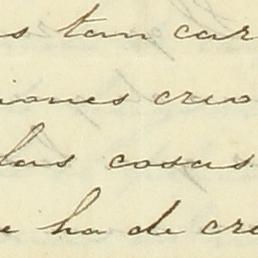 s tan car
iones creo
las cosas
e ha de cre